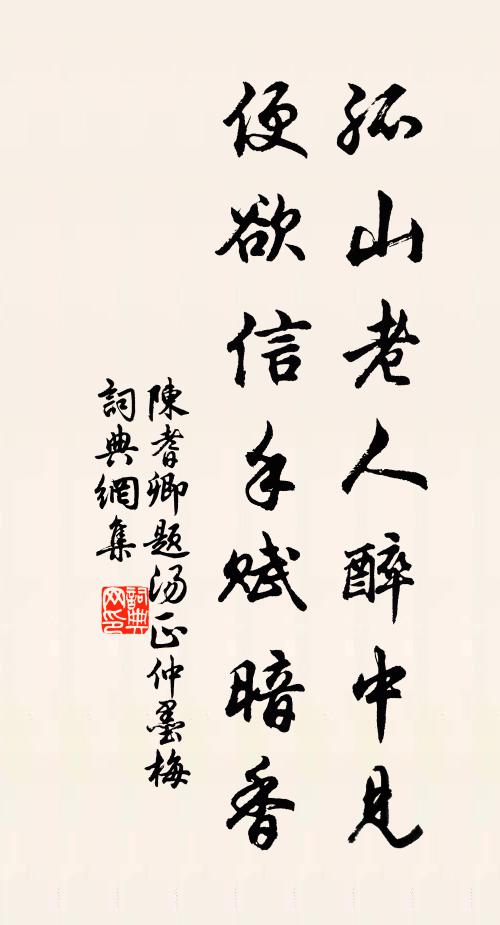 孤山老人醉中見
便欲信手賦暗香
陳耆卿題湯正仲墨梅
詞典網集
詞典网印